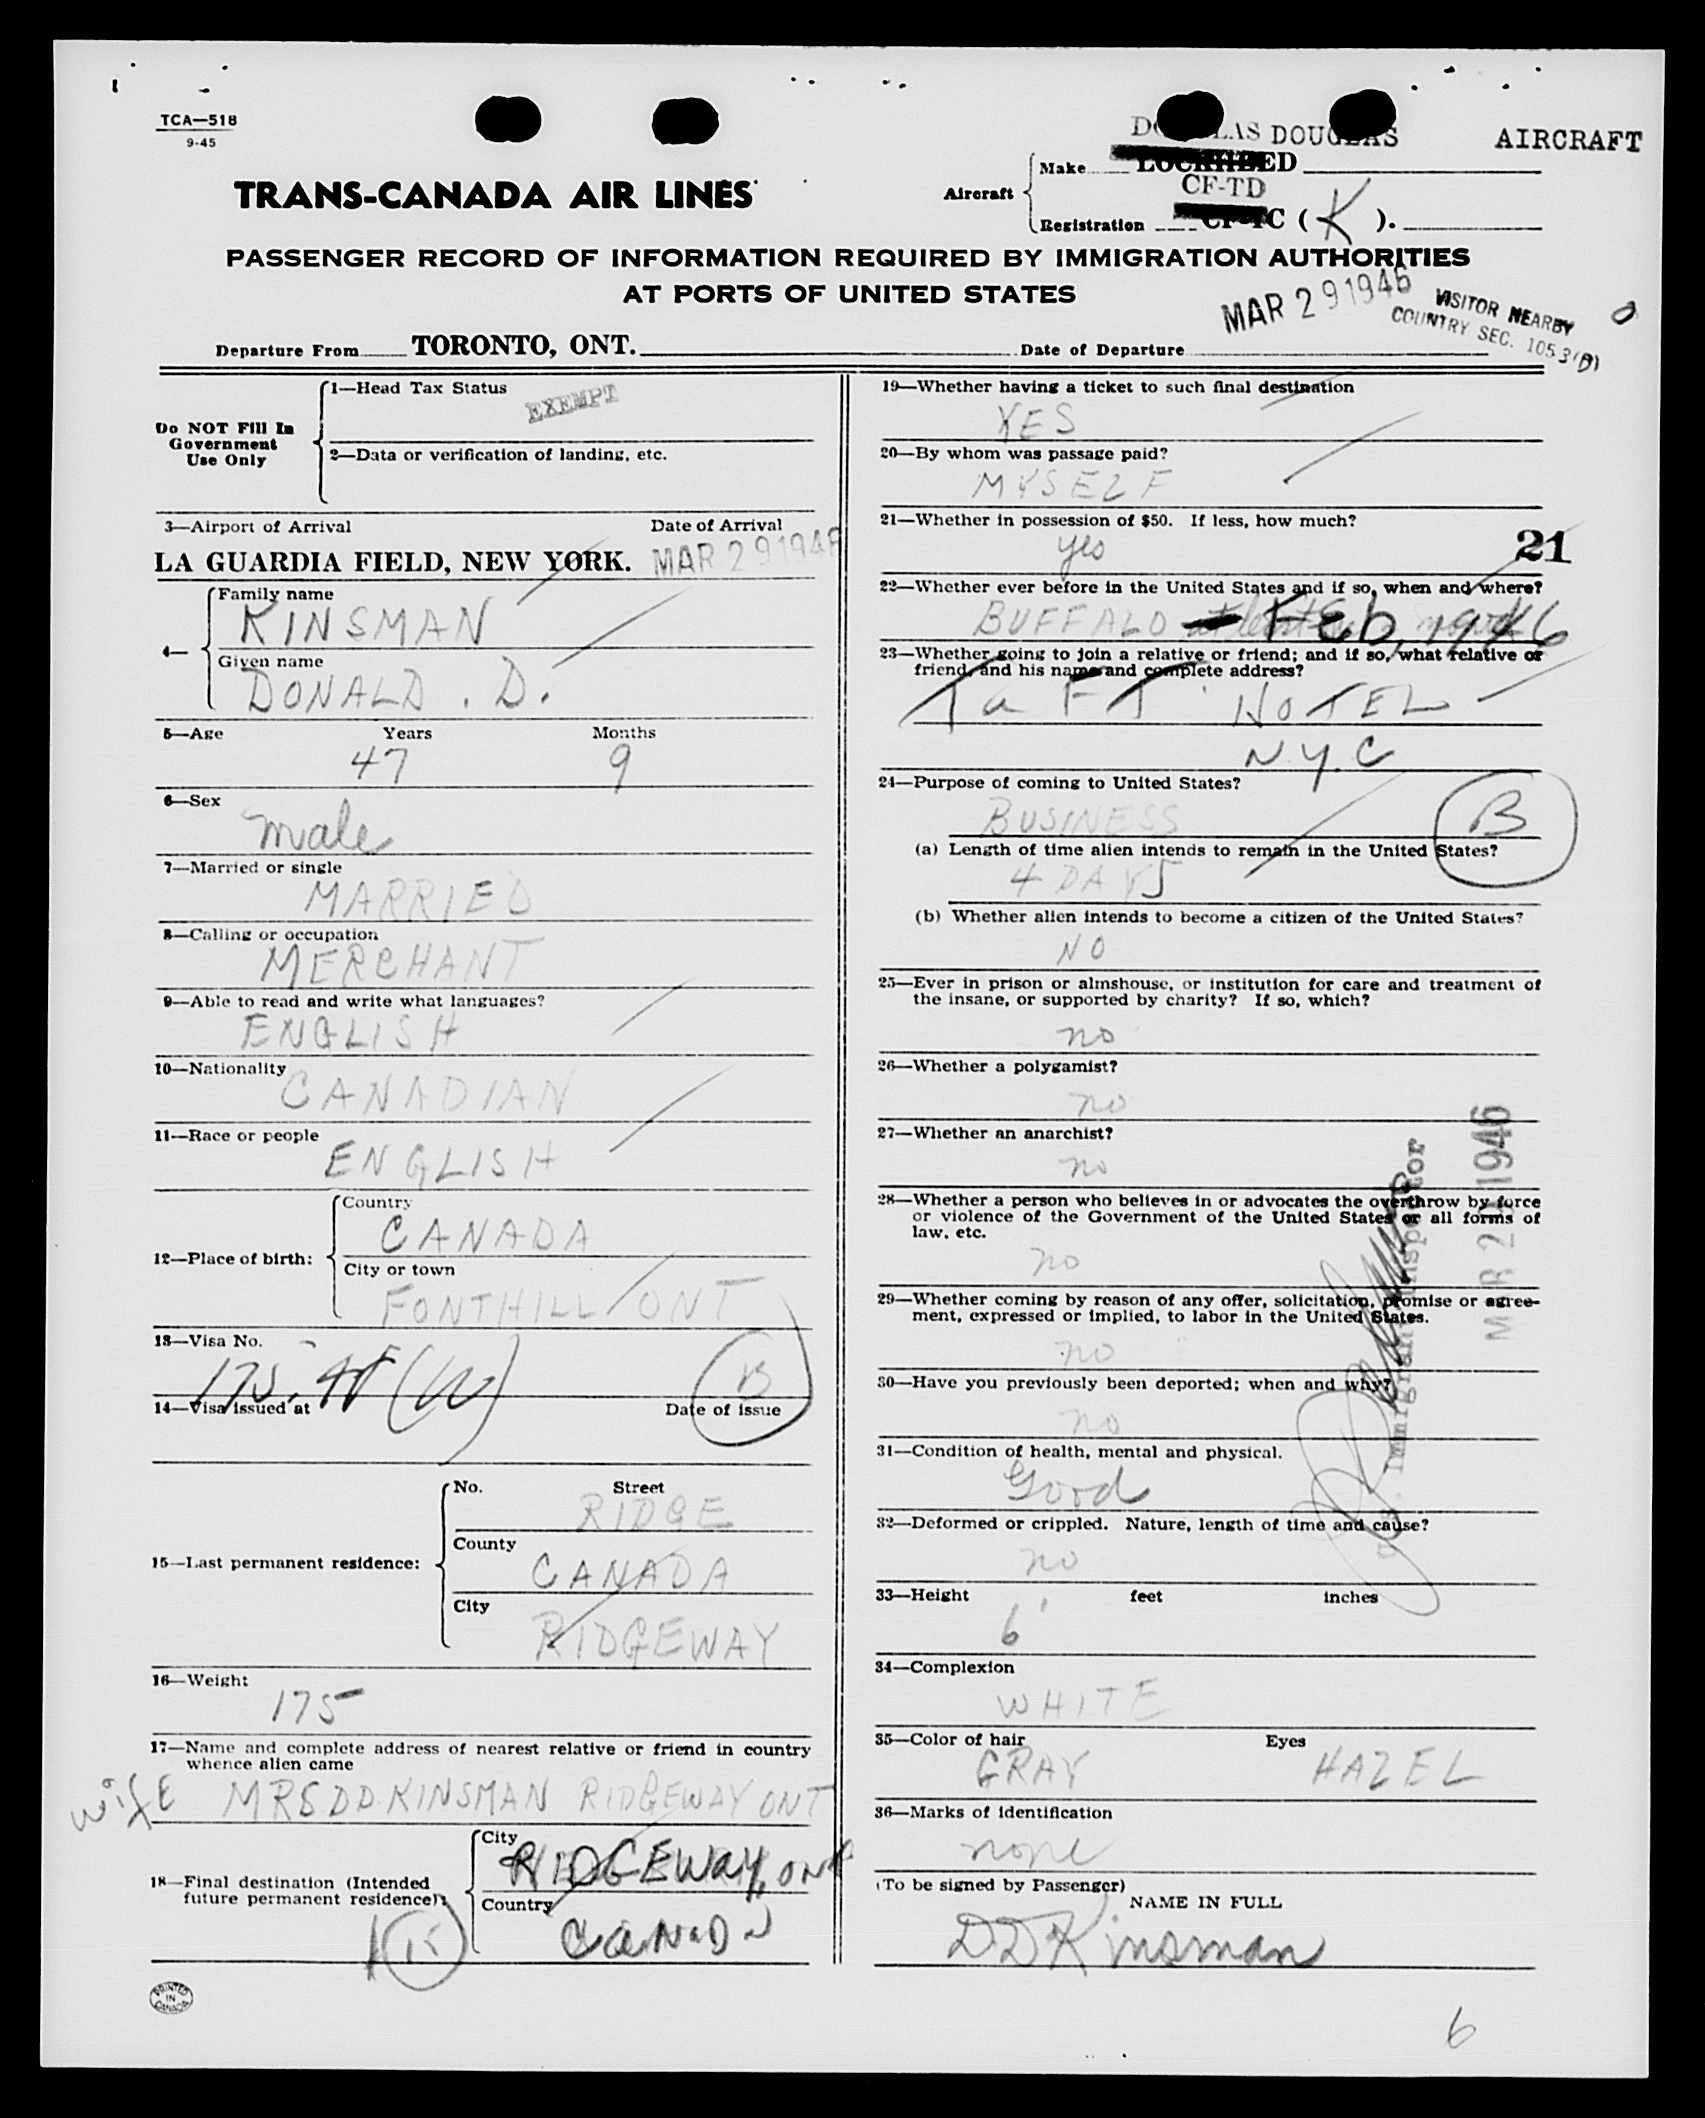 TCA—518
9-45
TRANS-CANADA AIR LINES
DOUGLAS DOUGLAS AIRCRAFT
Aircraft
Make LOCKHEED
CF-TD
Registration CF-TC ( K ).
PASSENGER RECORD OF INFORMATION REQUIRED BY IMMIGRATION AUTHORITIES
AT PORTS OF UNITED STATES
MAR 29 1946
VISITOR NEARBY
COUNTRY SEC. 1053(B)
Departure From TORONTO, ONT. Date of Departure
Do NOT Fill In
Government
Use Only
1—Head Tax Status
EXEMPT
2—Data or verification of landing, etc.
3—Airport of Arrival Date of Arrival
LA GUARDIA FIELD, NEW YORK. MAR 29 1946
4—
Family name
KINSMAN
Given name
DONALD . D.
5—Age Years Months
47 9
6—Sex
male
7—Married or single
MARRIED
8—Calling or occupation
MERCHANT
9—Able to read and write what languages?
ENGLISH
10—Nationality
CANADIAN
11—Race or people
ENGLISH
12—Place of birth:
Country
CANADA
City or town
FONTHILL ONT
13—Visa No.
B
14—Visa issued at Date of issue
15—Last permanent residence:
No. Street
RIDGE
County
CANADA
City
RIDGEWAY
16—Weight
175
17—Name and complete address of nearest relative or friend in country
whence alien came
wife MRS D D KINSMAN RIDGEWAY ONT
18—Final destination (Intended
future permanent residence):
City
RIDGEWAY, ONT
Country
CANADA
PRINTED
IN
CANADA
19—Whether having a ticket to such final destination
YES
20—By whom was passage paid?
MYSELF
21—Whether in possession of $50. If less, how much?
yes
21
22—Whether ever before in the United States and if so, when and where?
BUFFALO Feb, 1946
23—Whether going to join a relative or friend; and if so, what relative or
friend, and his name and complete address?
TaFT HOTEL
N.Y.C
24—Purpose of coming to United States?
BUSINESS
B
(a) Length of time alien intends to remain in the United States?
4 DAYS
(b) Whether alien intends to become a citizen of the United States?
NO
25—Ever in prison or almshouse, or institution for care and treatment of
the insane, or supported by charity? If so, which?
no
26—Whether a polygamist?
no
27—Whether an anarchist?
no
28—Whether a person who believes in or advocates the overthrow by force
or violence of the Government of the United States or all forms of
law, etc.
no
29—Whether coming by reason of any offer, solicitation, promise or agree-
ment, expressed or implied, to labor in the United States.
no
30—Have you previously been deported; when and why?
no
31—Condition of health, mental and physical.
Good
32—Deformed or crippled. Nature, length of time and cause?
no
U.S. Immigrant Inspector
MAR 29 1946
33—Height feet inches
6'
34—Complexion
WHITE
35—Color of hair Eyes
GRAY HAZEL
36—Marks of identification
none
(To be signed by Passenger)
NAME IN FULL
DD Kinsman
6